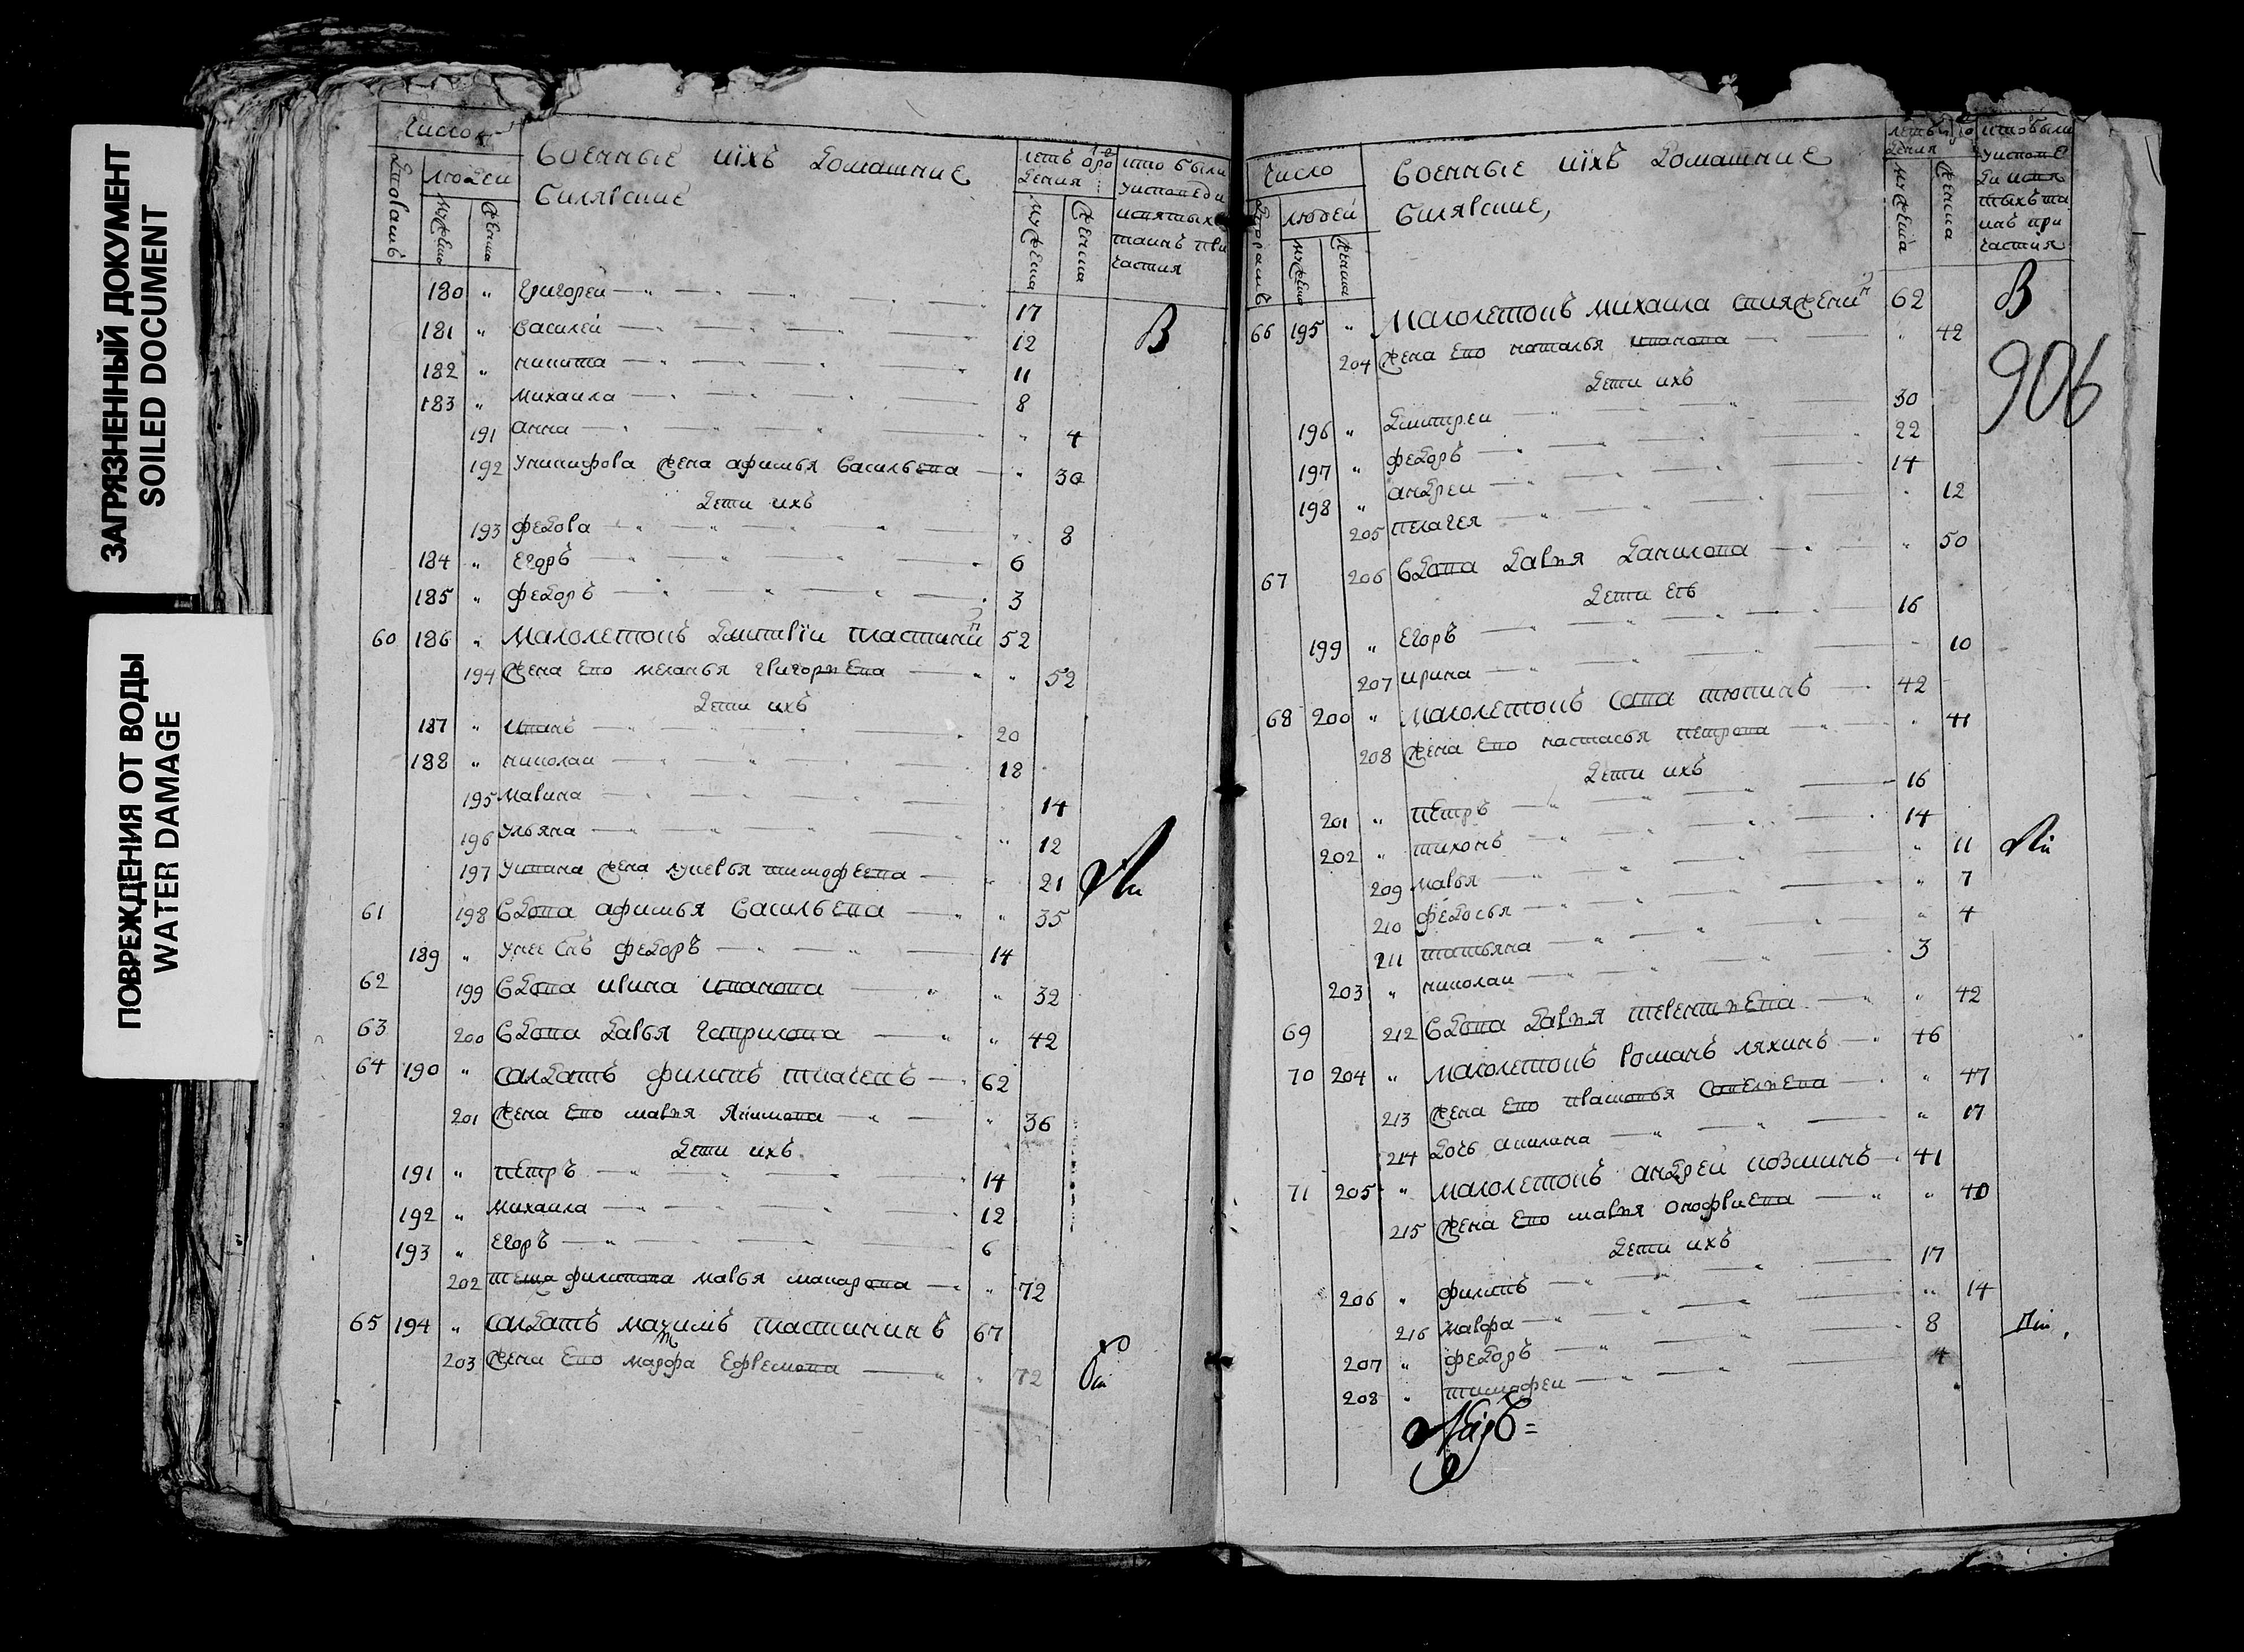 ЗАГРЯЗНЕННЫЙ ДОКУМЕНТ
SOILED DOCUMENT
ПОВРЕЖДЕНИЯ ОТ ВОДЫ
WATER DAMAGE
Число
людей
Военные иихъ домашние
летъ
что были
180 " Григорей 17
181 " Василей 12
182 " никита 11
183 " михаила 8
191 анна " 4
192 Уникифора жена афимья Васильева " 30
дети ихъ
193 федора " 8
184 " Егоръ 6
185 " федоръ 3
60 186 " малолетокъ дмитрiи 52
194 жена Ево меланья григорьева " 52
дети ихъ
187 " иванъ 20
188 " николаи 18
195 марина " 14
196 ульяна " 12
197 Уивана жена лукерья тимофеева " 21
61 198 вдова афимья Васильева " 35
189 " Унее снъ федоръ 14
62 199 вдова ирина иванова " 32
63 200 вдова дарья гаврилова " 42
64 190 " салдатъ филипъ ткачевъ 62
201 жена Ево марья Якимова " 36
дети ихъ
191 " петръ 14
192 " михаила 12
193 " Егоръ 6
202 теща филипова марья макарова " 72
65 194 " салдатъ махимъ 67
203 жена Ево марфа Ефремова " 72
число
людей
Военные иихъ домашние
что были
В
906
66 195 " малолетокъ михаила 62
204 жена Ево наталья иванова " 42
дети ихъ
196 " дмитреи 30
197 " федоръ 22
198 " андреи 14
205 пелагея " 12
67 206 вдова дарья данилова " 50
дети Еѣ
199 " Егоръ 16
207 ирина " 10
68 200 " малолетокъ сава тюпинъ 42
208 жена Ево настасья петрова " 41
дети ихъ
201 " петръ 16
202 " тихонъ 14
209 марья " 11
210 федосья " 7
211 татьяна " 4
203 " николаи 3
69 212 вдова дарья терентьева " 42
70 204 " малолетокъ романъ ляхинъ 46
213 жена Ево прасковья савельева " 47
214 дочь акилина " 17
71 205 " малолетокъ андреи козминъ 41
215 жена Ево марья онофриева " 40
дети ихъ
206 " филипъ 17
216 марфа " 14
207 " федоръ 8
208 " тимофеи 4